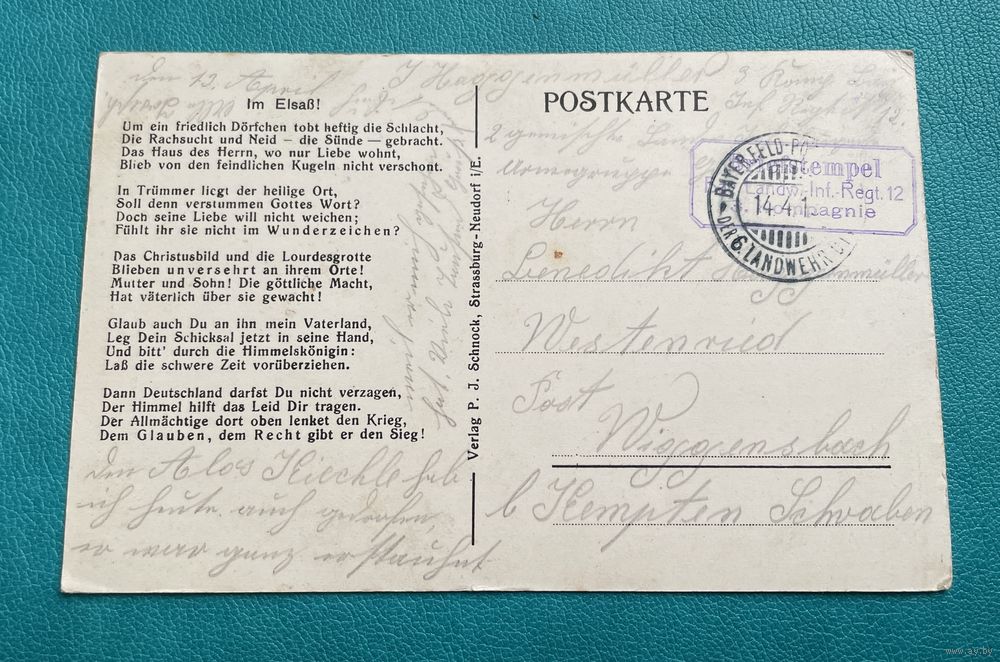 den 13. April
Im Elsaß!
Um ein friedlich Dörfchen tobt heftig die Schlacht,
Die Rachsucht und Neid — die Sünde — gebracht.
Das Haus des Herrn, wo nur Liebe wohnt,
Blieb von den feindlichen Kugeln nicht verschont.
In Trümmer liegt der heilige Ort,
Soll denn verstummen Gottes Wort?
Doch seine Liebe will nicht weichen;
Fühlt ihr sie nicht im Wunderzeichen?
Das Christusbild und die Lourdesgrotte
Blieben unversehrt an ihrem Orte!
Mutter und Sohn! Die göttliche Macht,
Hat väterlich über sie gewacht!
Glaub auch Du an ihn mein Vaterland,
Leg Dein Schicksal jetzt in seine Hand,
Und bitt' durch die Himmelskönigin:
Laß die schwere Zeit vorüberziehen.
Dann Deutschland darfst Du nicht verzagen,
Der Himmel hilft das Leid Dir tragen.
Der Allmächtige dort oben lenket den Krieg,
Dem Glauben, dem Recht gibt er den Sieg!
den Alos Kiechle hab
ich heute auch getrofen,
er war ganz erstauhnt
Verlag P. J. Schnock, Strassburg-Neudorf i/E.
J Haggenmüller 3 König
POSTKARTE
Inf. Regt 12
2 gemischte
Armegruppe
stempel
Landw.-Inf.-Regt. 12
Kompagnie
BAYER. FELD-PO
14.4.1
DER 6. LANDWEHR
Herrn
Benedikt Haggenmüller
Westenried
Post
Wiggensbach
b Kempten Schwaben
www.ay.by